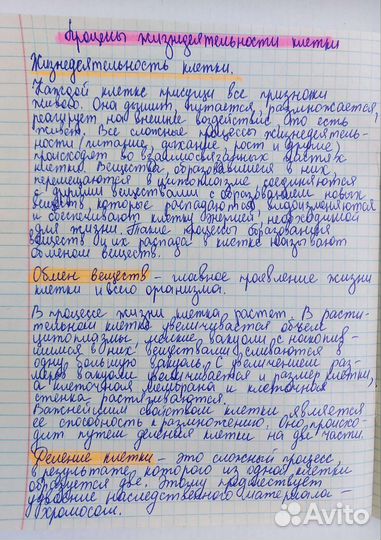 Процессы жизнедеятельности клетки
Жизнедеятельность клетки.
Каждой клетке присущи все признаки
живого. Она дышит, питается, размножается,
реагирует на внешние воздействие то есть
живёт. Все сложные процессы жизнедеятель-
ности (питание, дыхание, рост и другие)
происходят во взаимосвязанных частях
клетки. Вещества, образовавшиеся в них,
перемещаются в цитоплазме соединяются
с другими веществами с образованием новых
веществ, которые распадаются, видоизменяются
и обеспечивают клетку энергией, необходимой
для жизни. Такие процессы образования
веществ и их распада в клетке называют
обменом веществ.
Обмен веществ – главное проявление жизни
клетки и всего организма.
В процессе жизни клетка растет. В расти-
тельной клетке увеличивается объем
цитоплазмы, мелкие вакуоли с накопив-
шимися в них веществами сливаются в
одну большую вакуоль. С увеличением раз-
мера вакуоли увеличивается и размер клетки,
а клеточная мембрана и клеточная
стенка растягиваются.
Важнейшим свойством клетки является
ее способность к размножению. Оно происхо-
дит путем деления клетки на две части.
Деление клетки – это сложный процесс,
в результате которого из одной клетки
образуется две. Этому предшествует
удвоение наследственного материала –
хромосом.
Avito